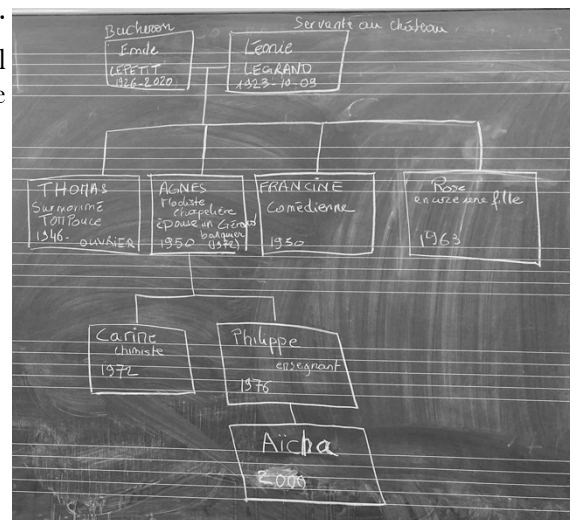 .
l
e
Bucheron
Servante au château
Emile
LEPETIT
1926-2020
Léonie
LEGRAND
1923-10-09
THOMAS
Surnommé
TOM Pouce
1946-
OUVRIER
AGNES
Modiste
chapelière
épouse un Gérard
banquier
1950 (1972)
FRANCINE
Comédienne
1950
Rose
encore une fille
1963
Carine
chimiste
1972
Philippe
enseignant
1976
Aïcha
2000